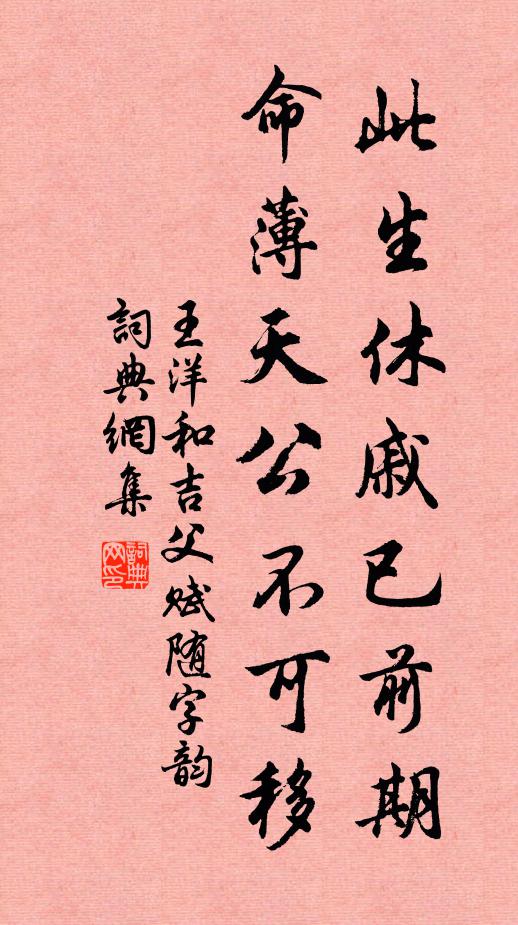 此生休戚已前期
命薄天公不可移
王洋和吉父赋随字韵
詞典網集
詞典网印